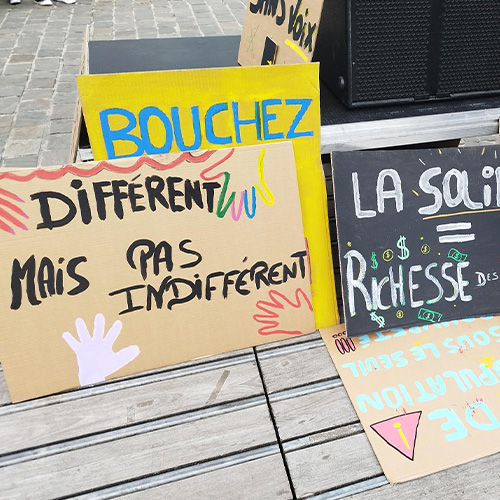 SANS VOIX
BOUCHEZ
DIFFÉRENT
MAIS PAS
INDIFFÉRENT
LA SOLI
=
RICHESSE DES
SOUS LE SEUIL
POPULATION
DE